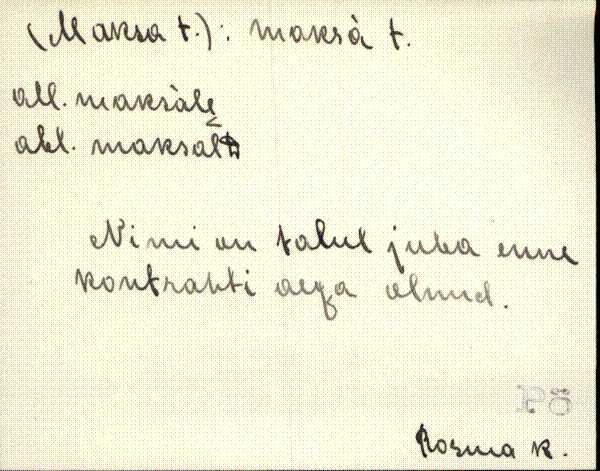 (Maksa t.): maksà t.
all. maksàle
abl. maksalt
Nimi on talul juba enne
kontrahti aega olnud.
Põ
Rosma k.